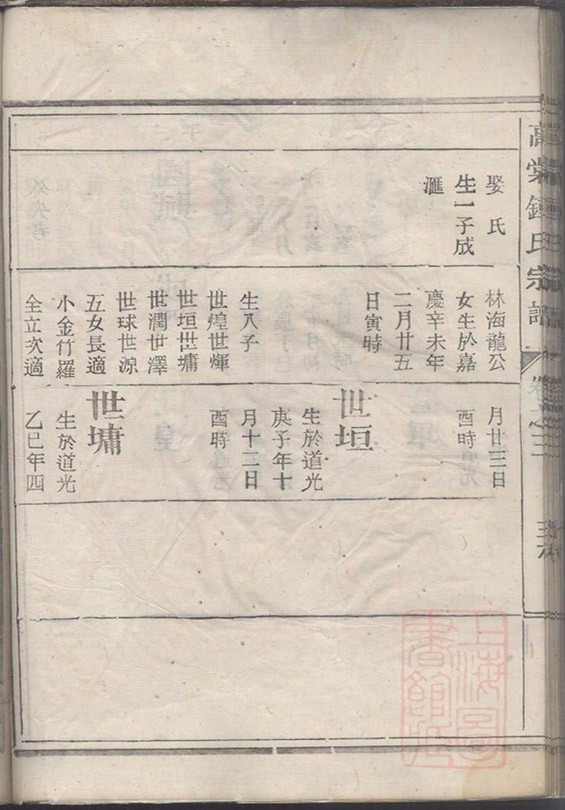 高棠鍾氏宗譜
卷之三
娶氏
生一子成
滙
林海龍公
女生於嘉
慶辛未年
二月廿五
日寅時
生八子
世煌世煇
世垣世墉
世潤世澤
世球世源
五女長適
小金竹羅
全立次適
月廿三日
酉時
世垣
生於道光
庚子年十
月十三日
酉時
世墉
生於道光
乙巳年四
上海圖
書館藏